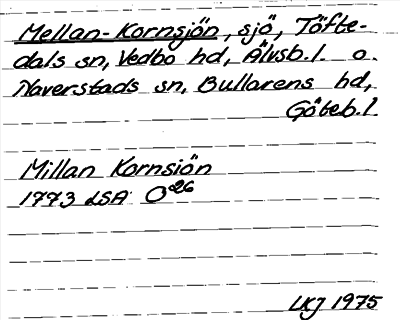 Mellan-Kornsjön, sjö, Töfte-
dals sn, Vedbo hd, Älvsb.l. o.
Naverstads sn, Bullarens hd,
Göteb.l
Millan Kornsiön
1773 LSA O26
LKJ 1975